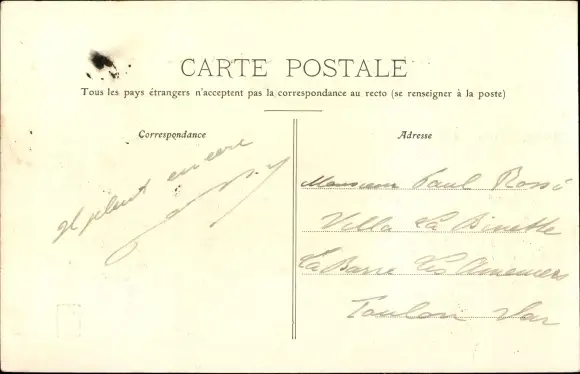 CARTE POSTALE
Tous les pays étrangers n'acceptent pas la correspondance au recto (se renseigner à la poste)
Correspondance
Il pleut encore
Adresse
Monsieur Paul Rossi
Villa La Binette
La Barre Les Ameniers
Toulon Var